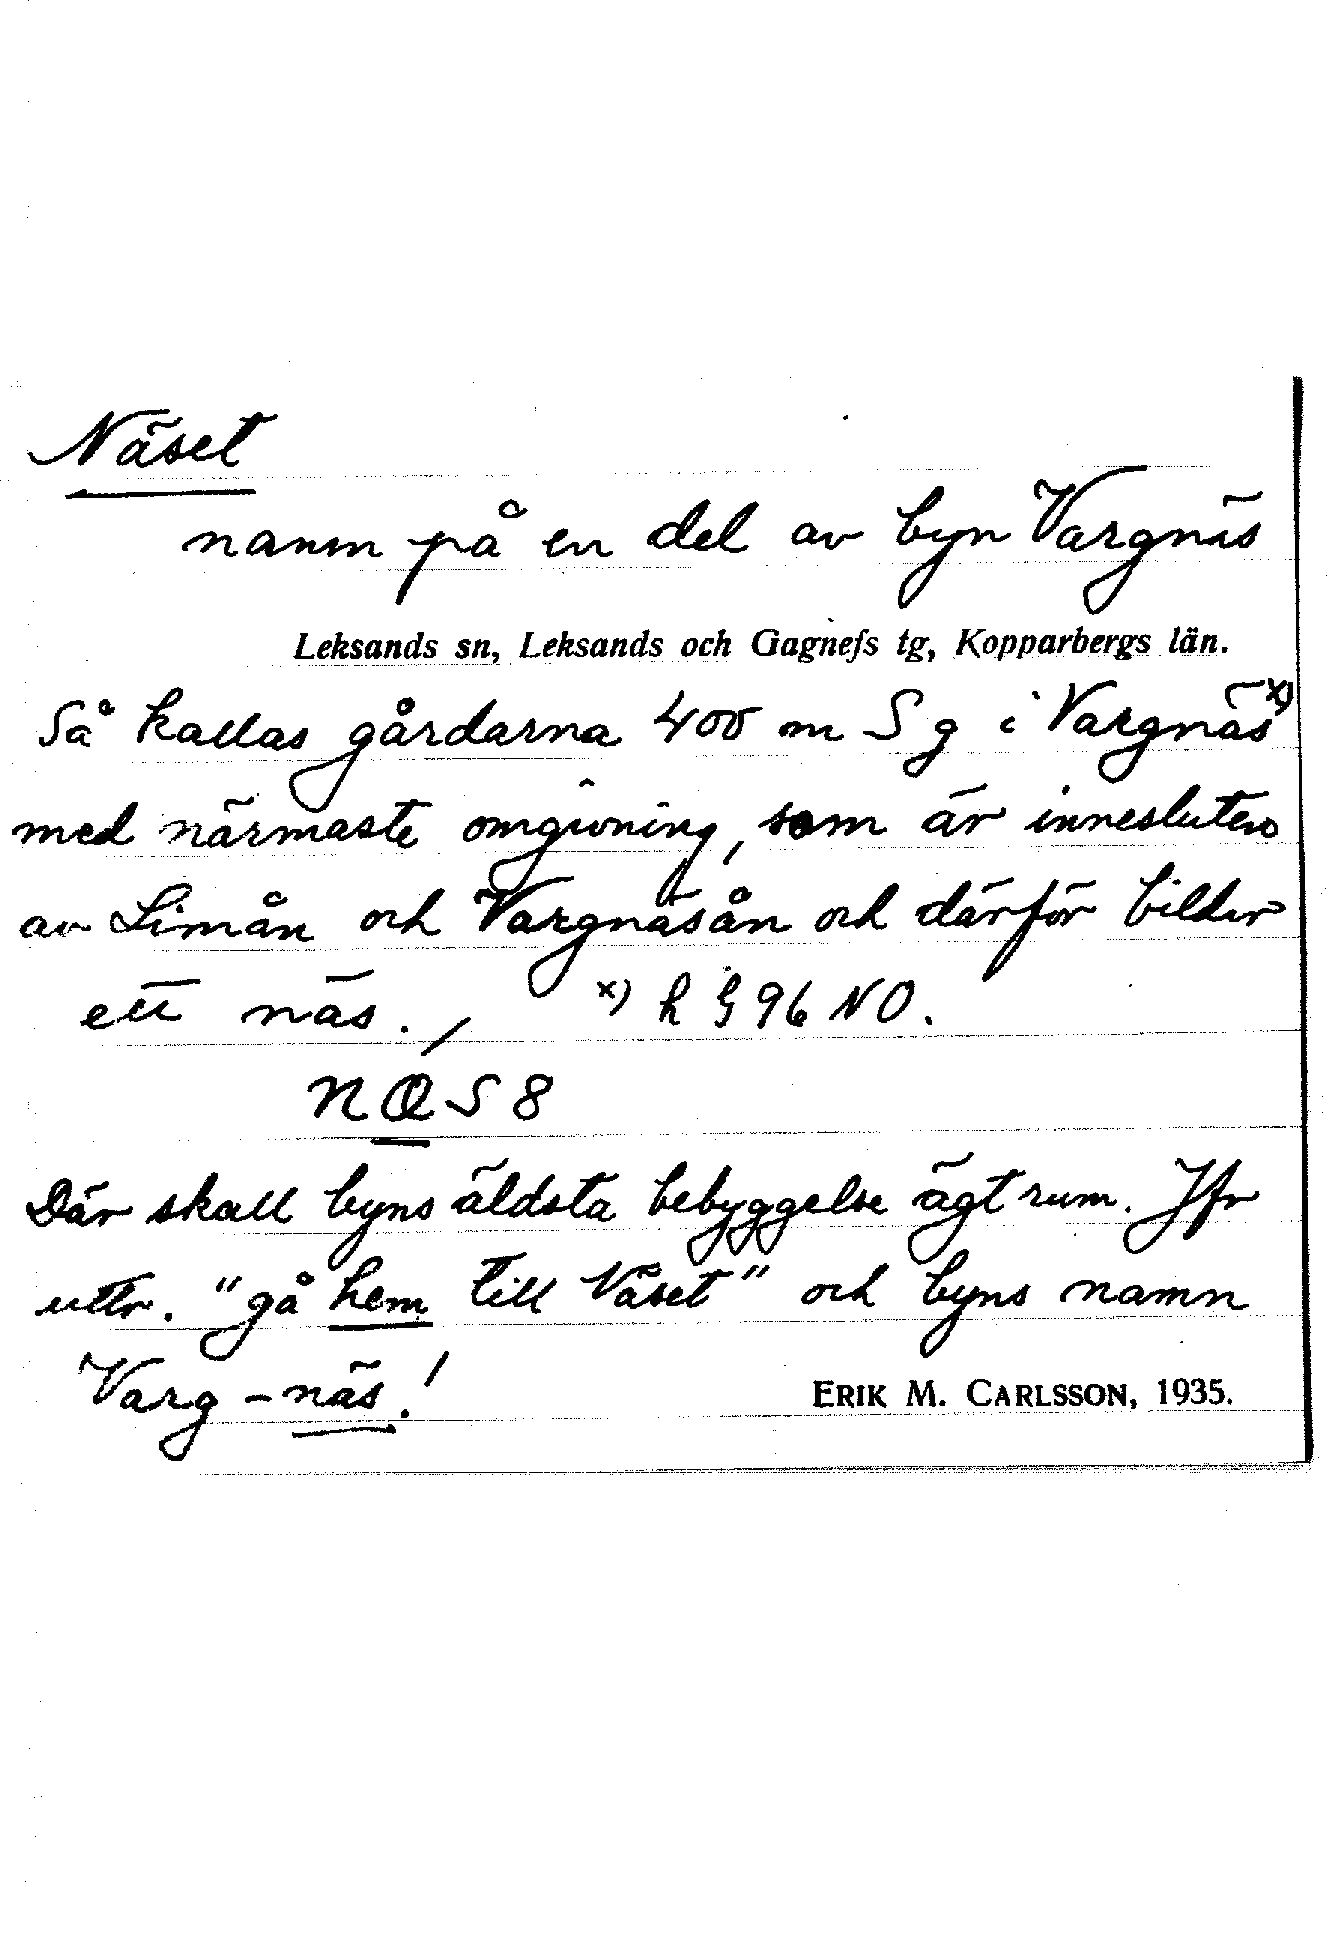 Näset
namn på en del av byn Vargnäs
Leksands sn, Leksands och Gagnefs tg, Kopparbergs län.
Så kallas gårdarna 400 m S g i Vargnäs x)
med närmaste omgivning, som är innesluten
av Limån och Vargnäsån och därför bilder
ett näs. x) h § 96 NO.
Där skall byns äldsta bebyggelse ägt rum. Jfr
uttr. "gå hem till Näset" och byns namn
Varg-näs!
ERIK M. CARLSSON, 1935.